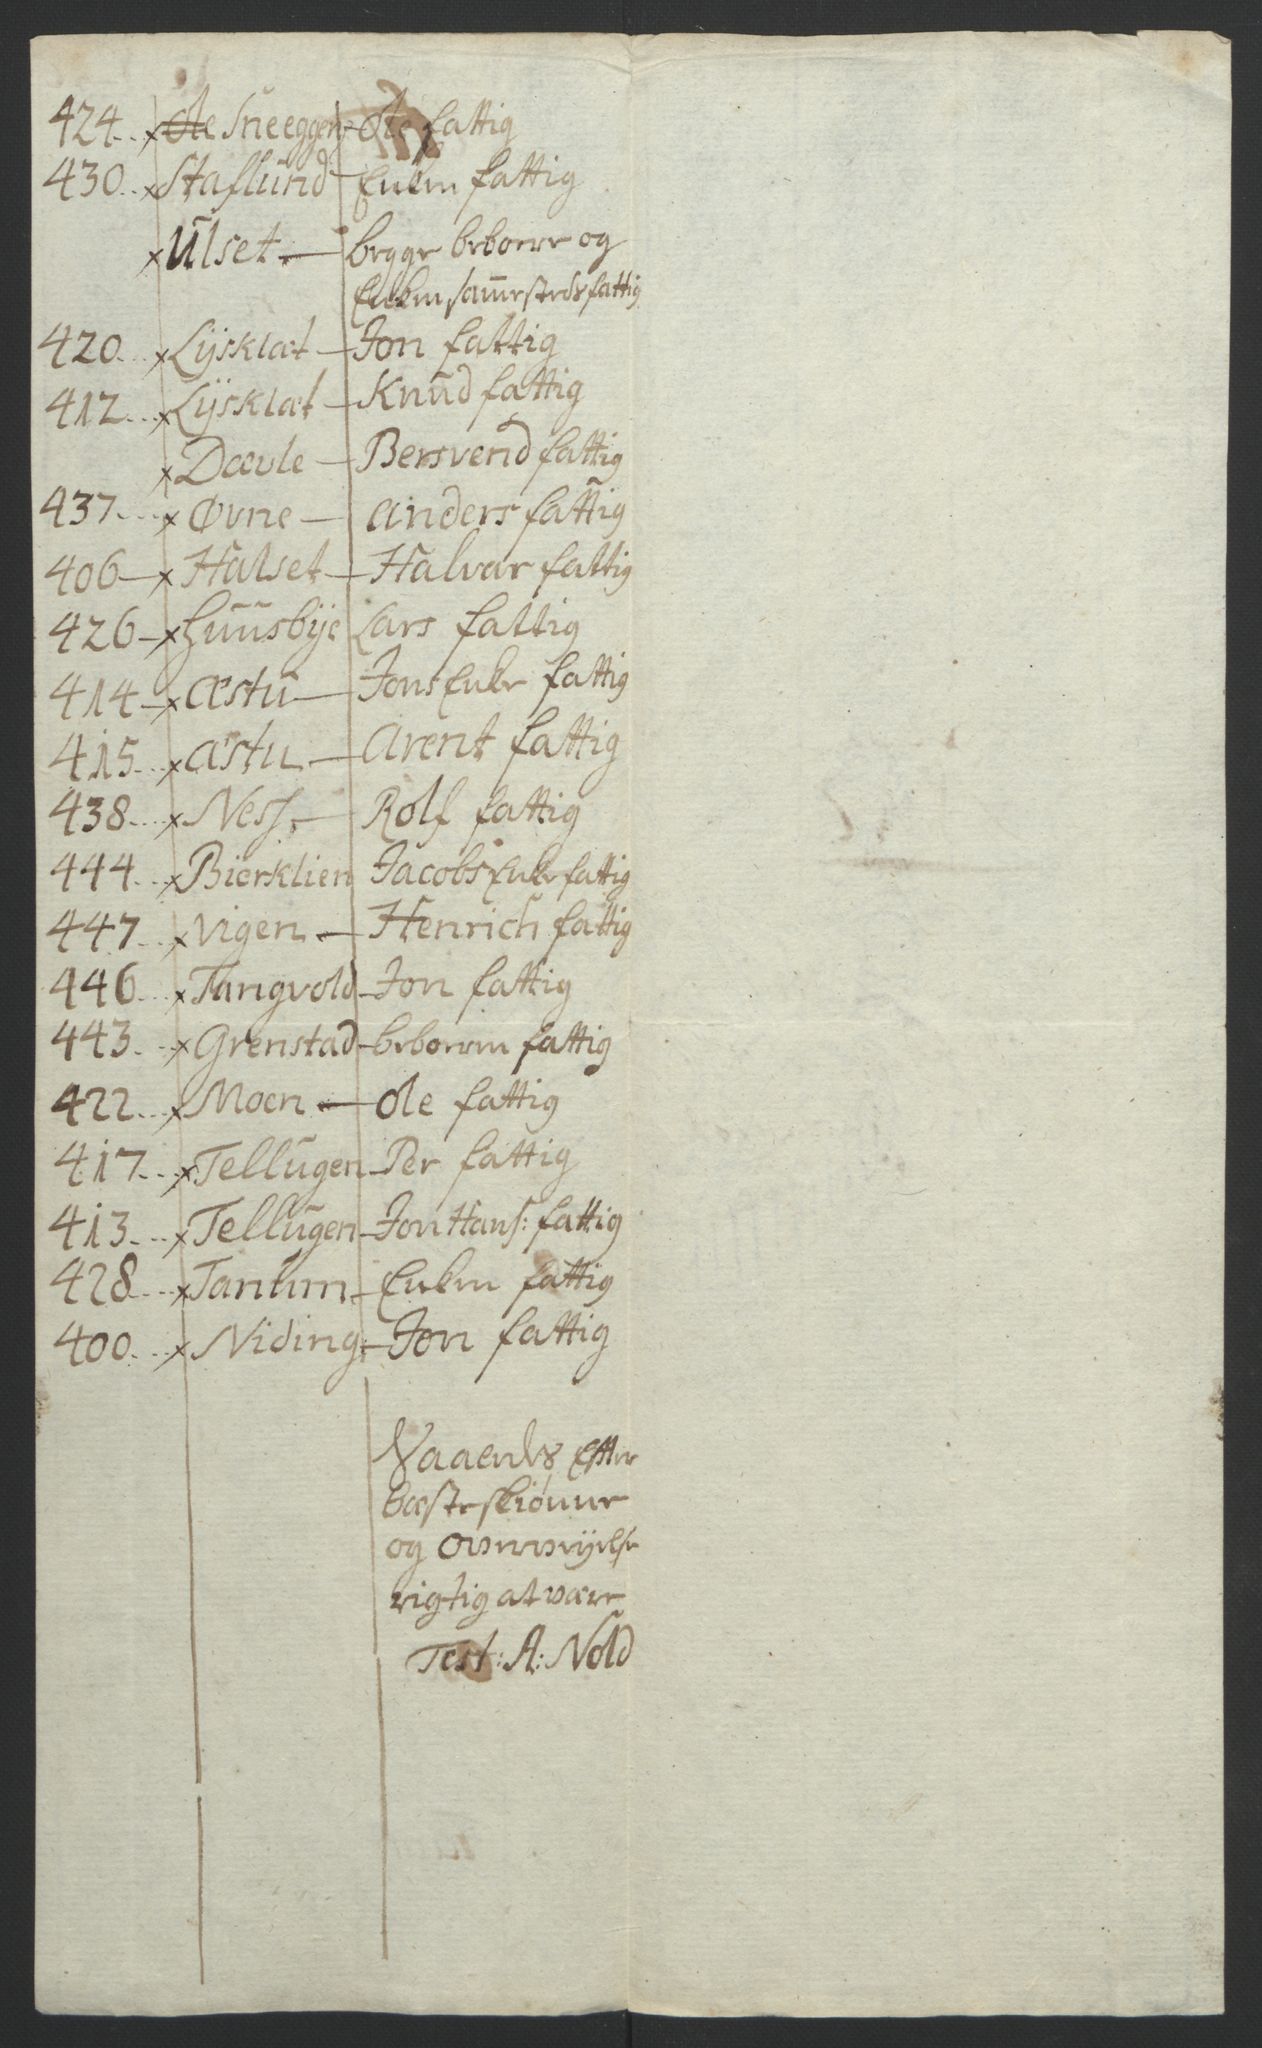 424.. x ~~Ole~~ Sneeggen - Ole fattig
430.. x Staflund - Enken fattig
x Ulset - begge beboere og
Enken sam̄esteds fattig
420... x Lysklæt - Jon fattig
412... x Lysklæt - Knud fattig
x Dævle - Bersvend fattig
437... x Øvne - Anders fattig
406 - x Halset - Halvar fattig
426 - x Huusbye Lars fattig
414 - x Æstu - Jons Enke fattig
415... x Æstu - Arent fattig
438... x Ness - Rolf fattig
444... x Bierklien Jacobs Enke fattig
447... x Vigen - Henrich fattig
446... x Tangvold - Jon fattig
443... x Grenstad - beboeren fattig
422... x Moen - Ole fattig
417... x Tellugen - Per fattig
413... x Tellugen - Jon Hans: fattig
428... x Tanum - Enken fattig
400... x Niding: - Jon fattig
Efter
bæste skiønne
og overveyelse
rigtig at være
Test: A: Nold